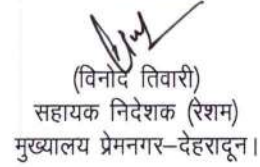 (विनोद तिवारी)
सहायक निदेशक (रेशम)
मुख्यालय प्रेमनगर–देहरादून।